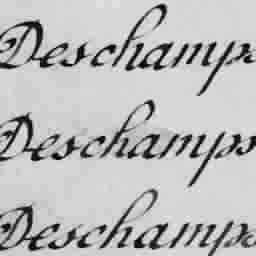 Deschamps
Deschamps
Deschamps